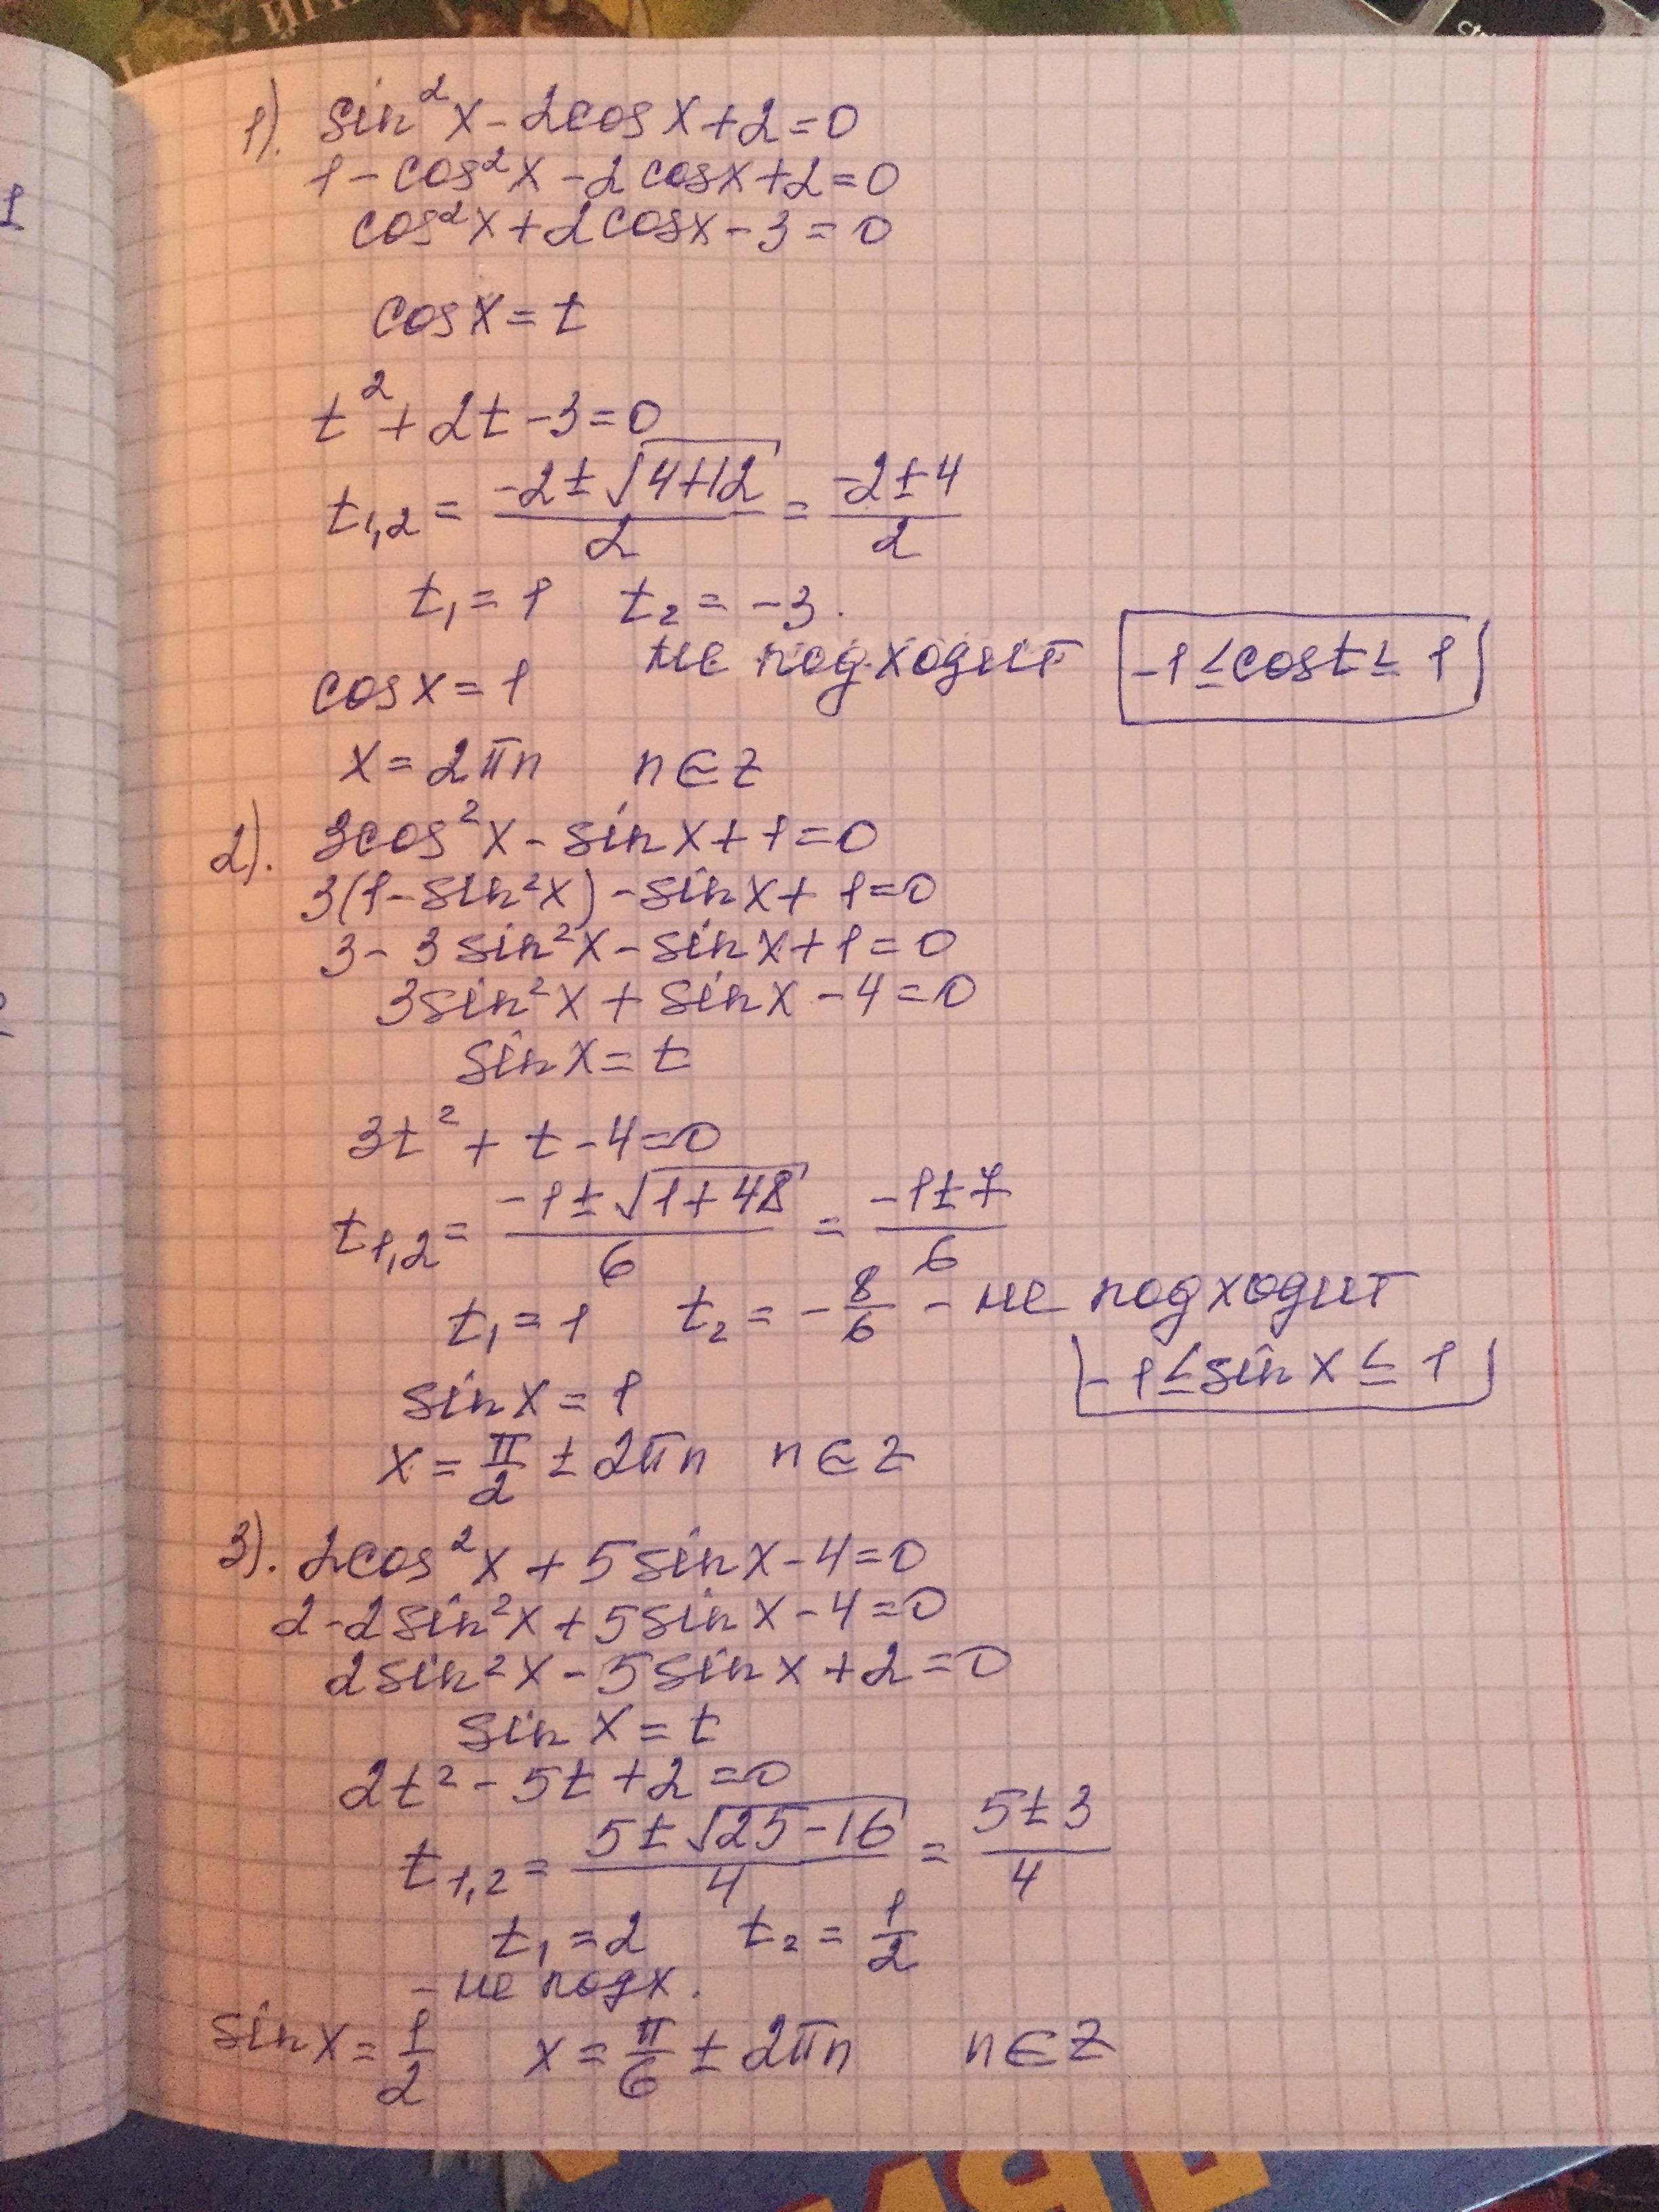 1). sin²x - 2cosx + 2 = 0
1 - cos²x - 2cosx + 2 = 0
cos²x + 2cosx - 3 = 0
cosx = t
t² + 2t - 3 = 0
t₁,₂ = (-2 ± √(4+12))/2 = (-2 ± 4)/2
t₁ = 1 t₂ = -3.
не подходит -1 ≤ cost ≤ 1
cosx = 1
x = 2πn n ∈ z
2). 3cos²x - sinx + 1 = 0
3(1 - sin²x) - sinx + 1 = 0
3 - 3sin²x - sinx + 1 = 0
3sin²x + sinx - 4 = 0
sinx = t
3t² + t - 4 = 0
t₁,₂ = (-1 ± √(1+48))/6 = (-1 ± 7)/6
t₁ = 1 t₂ = -8/6 - не подходит
-1 ≤ sin x ≤ 1
sinx = 1
x = π/2 ± 2πn n ∈ z
3). 2cos²x + 5sinx - 4 = 0
2 - 2sin²x + 5sinx - 4 = 0
2sin²x - 5sinx + 2 = 0
sin x = t
2t² - 5t + 2 = 0
t₁,₂ = (5 ± √(25-16))/4 = (5 ± 3)/4
t₁ = 2 t₂ = 1/2
- не подх.
sinx = 1/2 x = π/6 ± 2πn n ∈ z